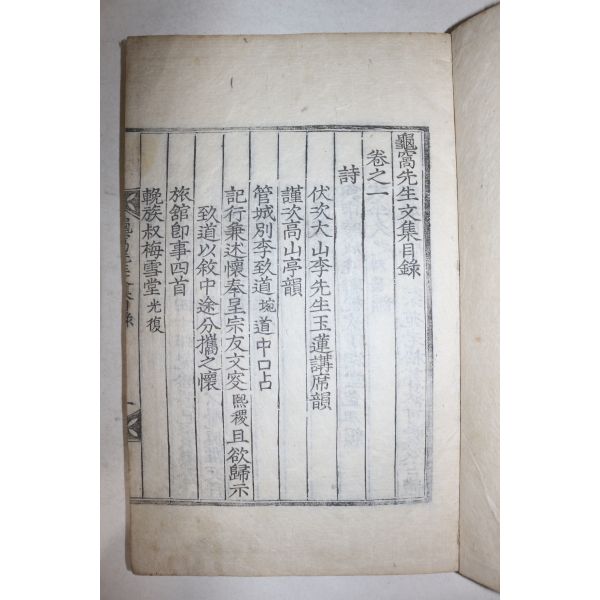 龜窩先生文集目錄
卷之一
詩
伏次大山李先生玉蓮講席韻
謹次高山亭韻
管城別李致道埦道中口占
記行兼述懷奉呈宗友文安熙稷且欲歸示
致道以敘中途分攜之懷
旅舘卽事四首
輓族叔梅雪堂光復